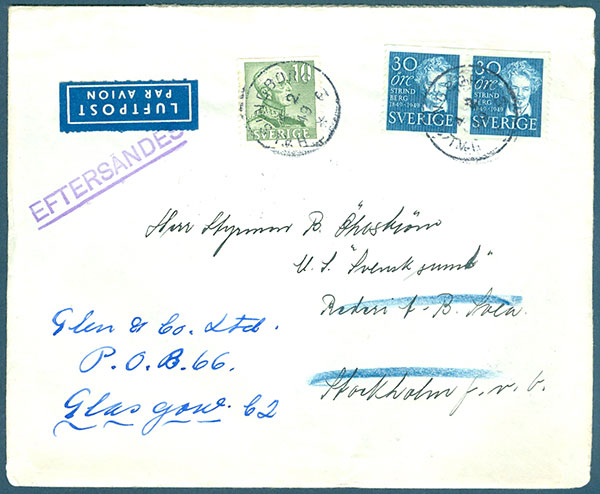 LUFTPOST
PAR AVION
EFTERSÄNDES
10
SVERIGE
30
öre
STRIND
BERG
1849-1949
SVERIGE
30
öre
STRIND
BERG
1849-1949
SVERIGE
Herr Styrman B.
M. S. "Svensksund"
Rederi
Stockholm f. v. b.
Glen & Co. Ltd.
P.O.B. 66.
Glasgow. C2